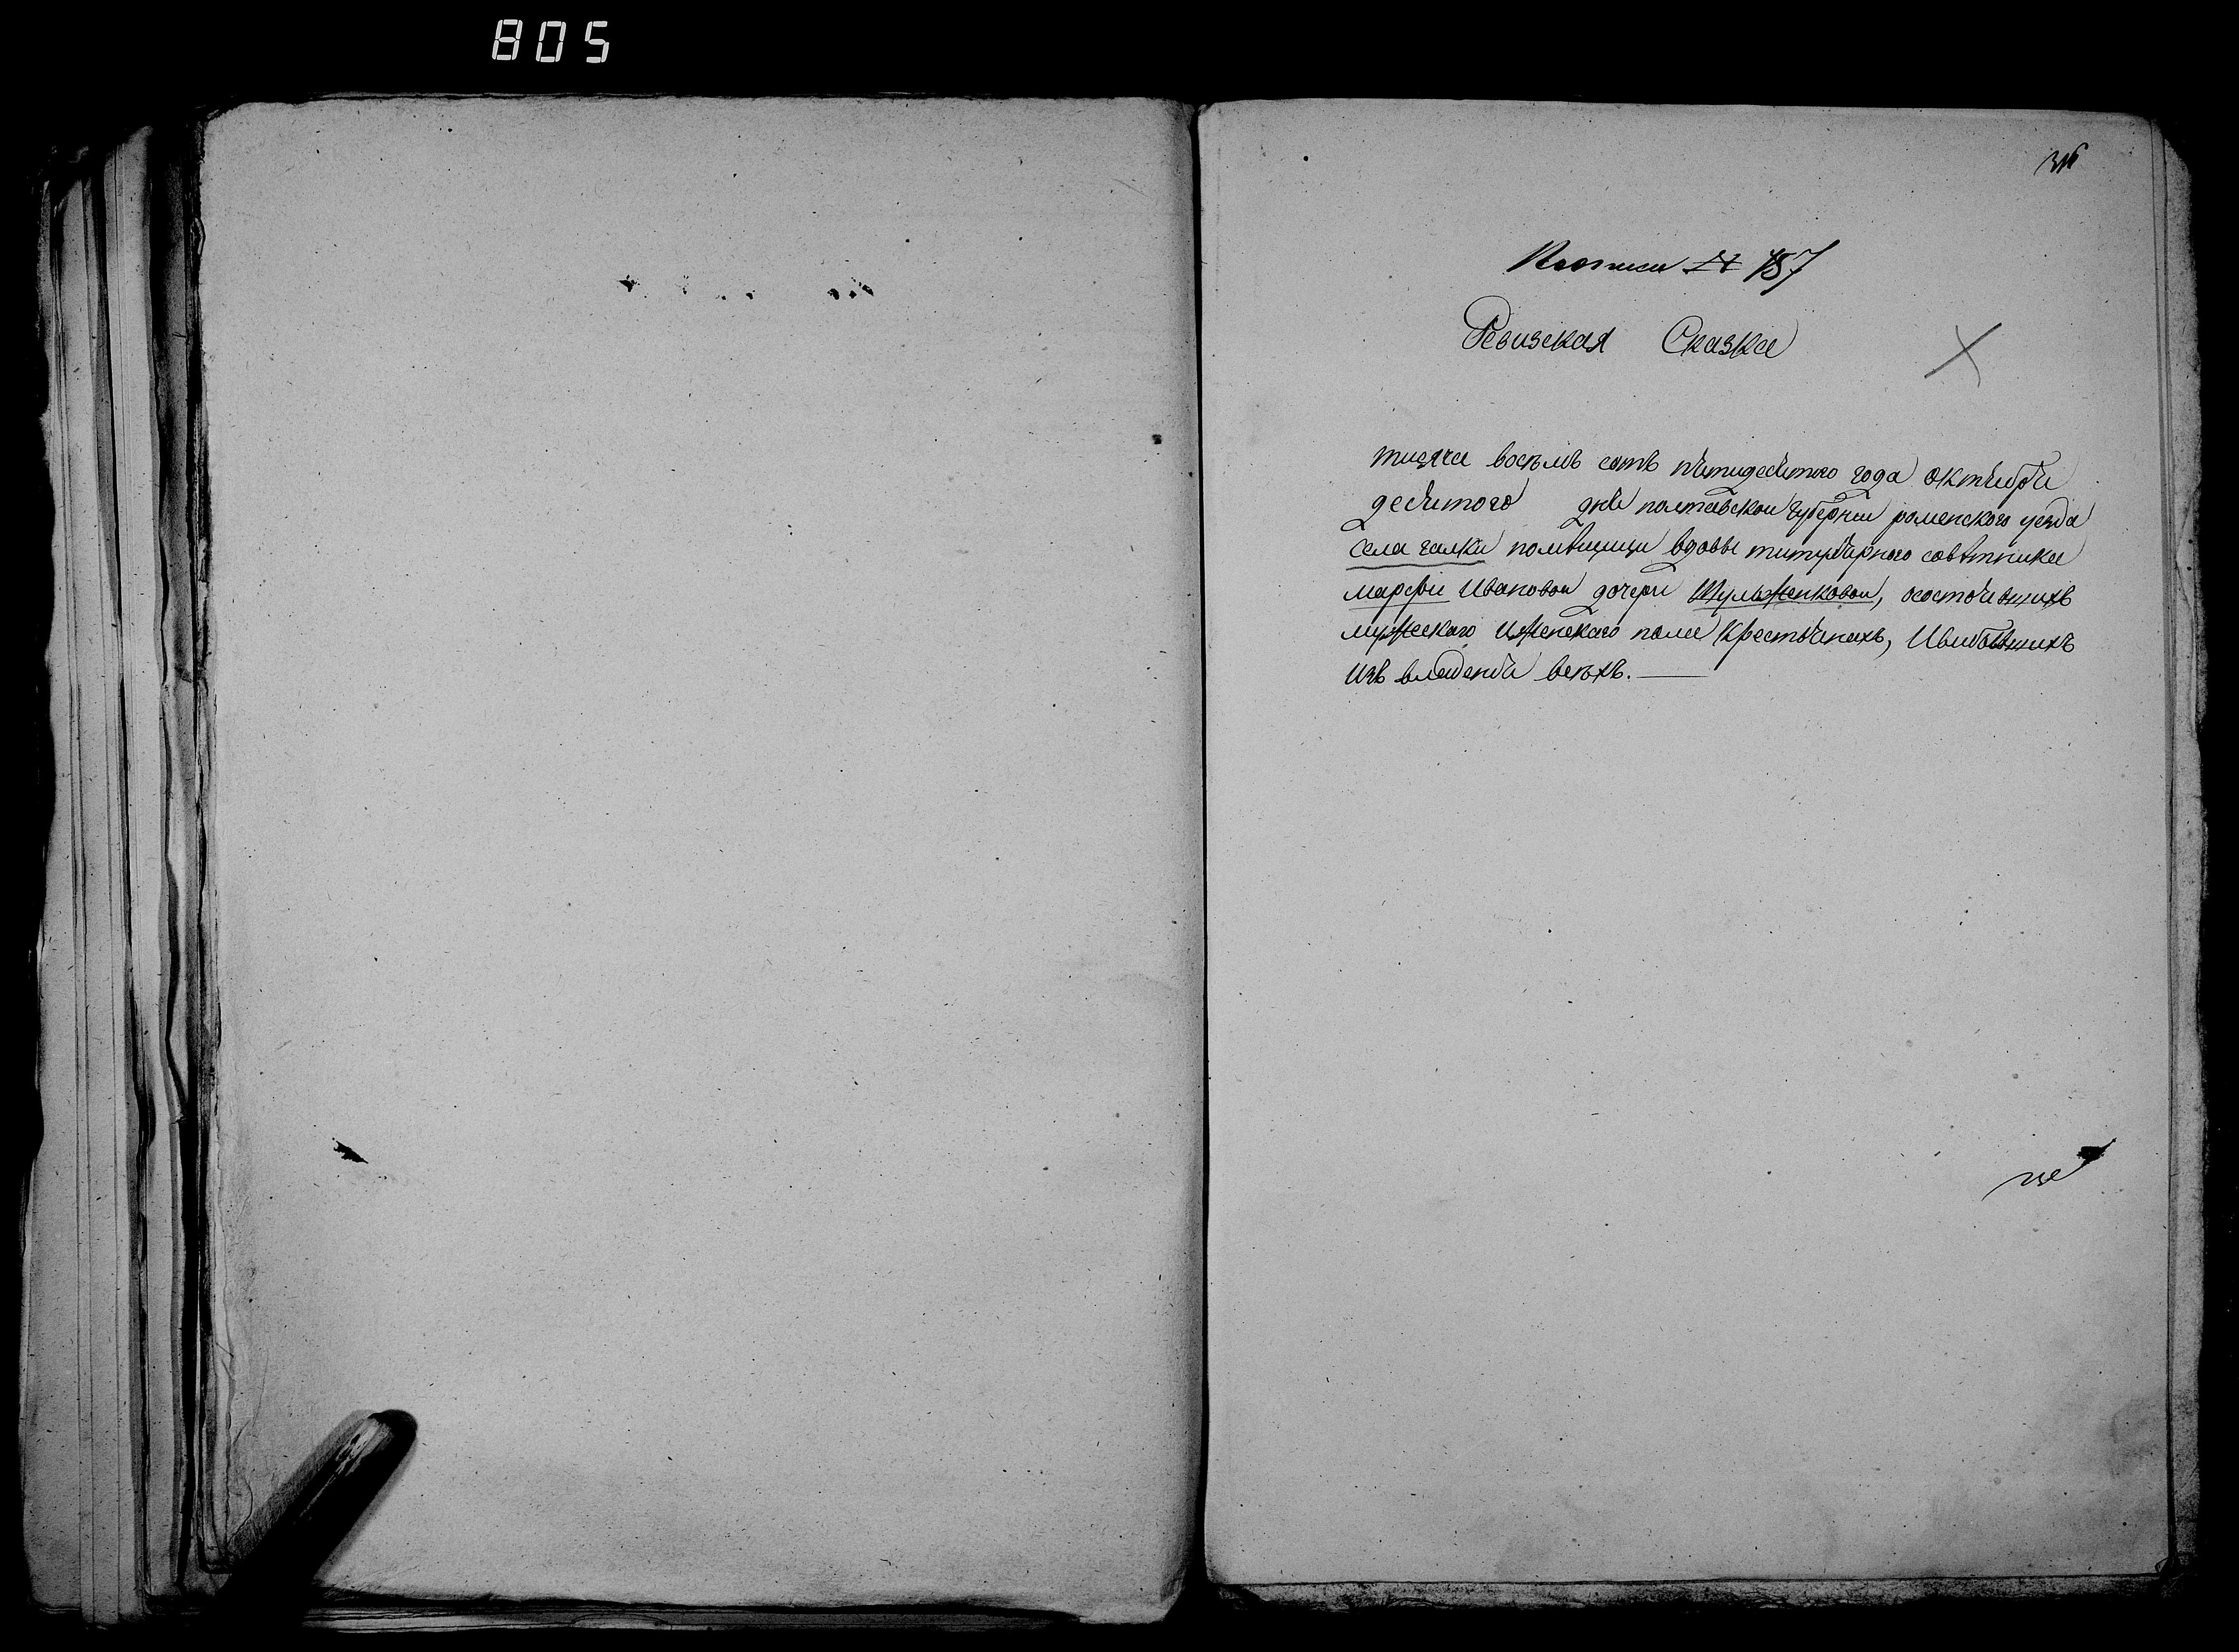 805
№ 487
Ревизская Сказка
тисяча восъмъ сотъ пятидесятого года октября
десятого дня полтавскои губернии роменского уезда
села галки помѣщици вдовы титулярного совѣтника
марфи Ивановои дочери Шулженковои, осостоявшихъ
мужескаго иженскаго пола крестянахъ, Ивибовшихъ
изъ владения